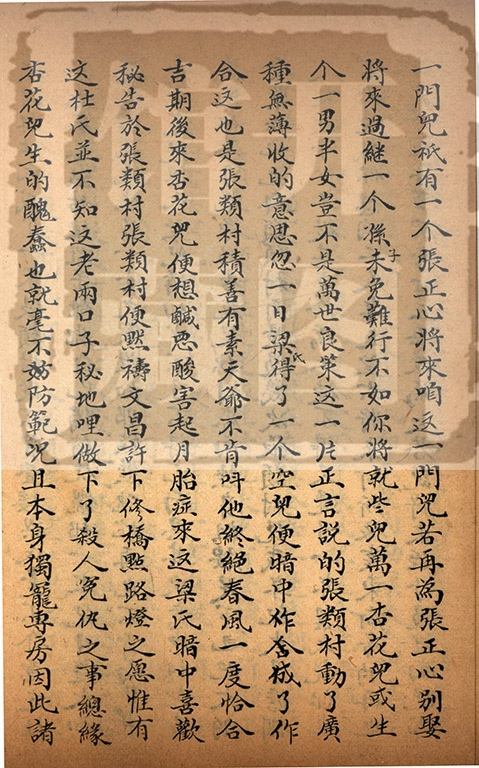 一門兒祗有一个張正心將來咱這一門兒若再為張正心別娶
將來過継一个孫子未免難行不如你將就些兒萬一杏花兒或生
个一男半女豈不是萬世良策這一片正言說的張類村動了廣
種無薄收的意思忽一日梁氏得了一个空兒便暗中作合成了作
合這也是張類村積善有素天爺不肯呌他終絕春風一度恰合
吉期後來杏花兒便想鹹思酸害起月胎症來這梁氏暗中喜歡
秘告於張類村張類村便黙禱文昌許下修橋㸃路燈之愿惟有
這杜氏並不知這老兩口子秘地哩做下了殺人寃仇之事總緣
杏花兒生的醜蠢也就毫不妨防範况且本身獨寵專房因此諸